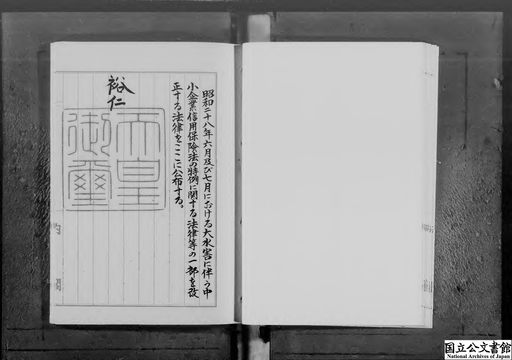 昭和二十八年六月及び七月における大水害に伴う中
小企業信用保険法の特例に関する法律等の一部を改
正する法律をここに公布する。
裕仁
天皇
御璽
国立公文書館
National Archives of Japan